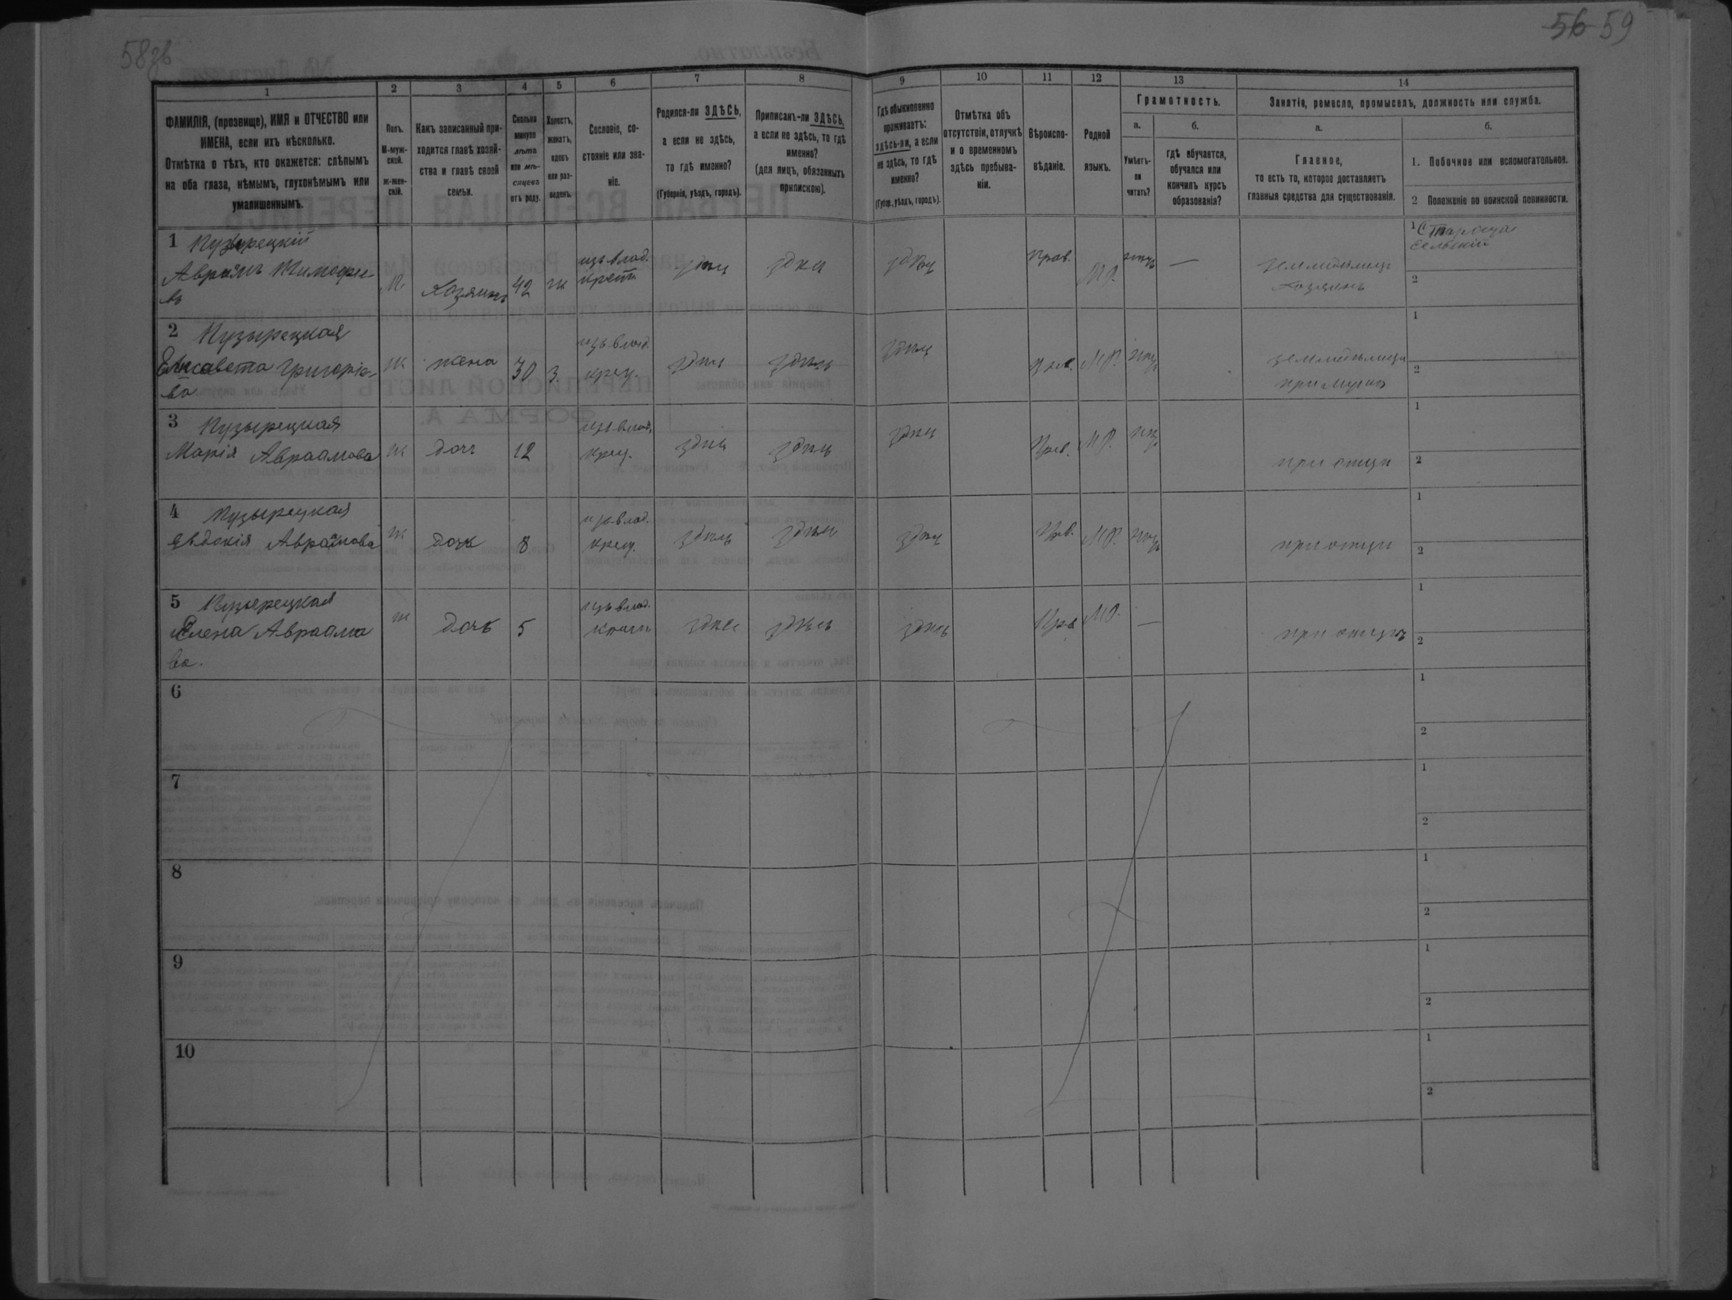 58об
56 59
1
2
3
4
5
6
7
8
9
10
11
12
13
14
ФАМИЛІЯ, (прозвище), ИМЯ и ОТЧЕСТВО или
ИМЕНА, если ихъ нѣсколько.
Отмѣтка о тѣхъ, кто окажется: слѣпымъ
на оба глаза, нѣмымъ, глухонѣмымъ или
умалишеннымъ.
Полъ.
М-муж-
ской.
ж-жен-
скій.
Какъ записанный при-
ходится главѣ хозяй-
ства и главѣ своей
семьи.
Сколько
минуло
лѣтъ
или мѣ-
сяцевъ
отъ роду.
Холостъ,
женатъ,
вдовъ
или раз-
веденъ.
Сословіе, со-
стояніе или зва-
ніе.
Родился-ли ЗДѢСЬ,
а если не здѣсь,
то гдѣ именно?
(Губернія, уѣздъ, городъ).
Приписанъ-ли ЗДѢСЬ,
а если не здѣсь, то гдѣ
именно?
(для лицъ, обязанныхъ
припискою).
Гдѣ обыкновенно
проживаетъ:
здѣсь-ли, а если
не здѣсь, то гдѣ
именно?
(Губер., уѣздъ, городъ).
Отмѣтка объ
отсутствіи, отлучкѣ
и о временномъ
здѣсь пребыва-
ніи.
Вѣроиспо-
вѣданіе.
Родной
языкъ.
Грамотность.
а.
б.
Умѣетъ-
ли
читать?
гдѣ обучается,
обучался или
кончилъ курсъ
образованія?
Занятіе, ремесло, промыселъ, должность или служба.
а.
б.
Главное,
то есть то, которое доставляетъ
главныя средства для существованія.
1. Побочное или вспомогательное.
2 Положеніе по воинской повинности.
1 Пузырецкій
Авраамъ Тимофее-
въ
М.
Хозяинъ
42
ж
изъ влад.
крест
здѣсь
здѣсь
здѣсь
Прав.
МР.
—
хозяинъ
1 Староста
Сельскій
2
2 Пузырецкая
Елисавета Григорье-
ва
ж
жена
30
з.
изъ влад.
крес.
здѣсь
здѣсь
здѣсь
Прав.
МР.
при мужѣ
1
2
3 Пузырецкая
Марія Авраамова
ж
дочь
12
изъ влад.
крес.
здѣсь
здѣсь
здѣсь
Прав.
МР.
при отцѣ
1
2
4 Пузырецкая
Явдокія Авраамова
ж
дочь
8
изъ влад.
крес.
здѣсь
здѣсь
здѣсь
Прв.
МР.
при отцѣ
1
2
5 Пузырецкая
Елена Авраамо
ва.
ж
дочь
5
изъ влад.
здѣсь
здѣсь
здѣсь
Прав
МР.
—
при отцѣ
1
2
6
1
2
7
1
2
8
1
2
9
1
2
10
1
2